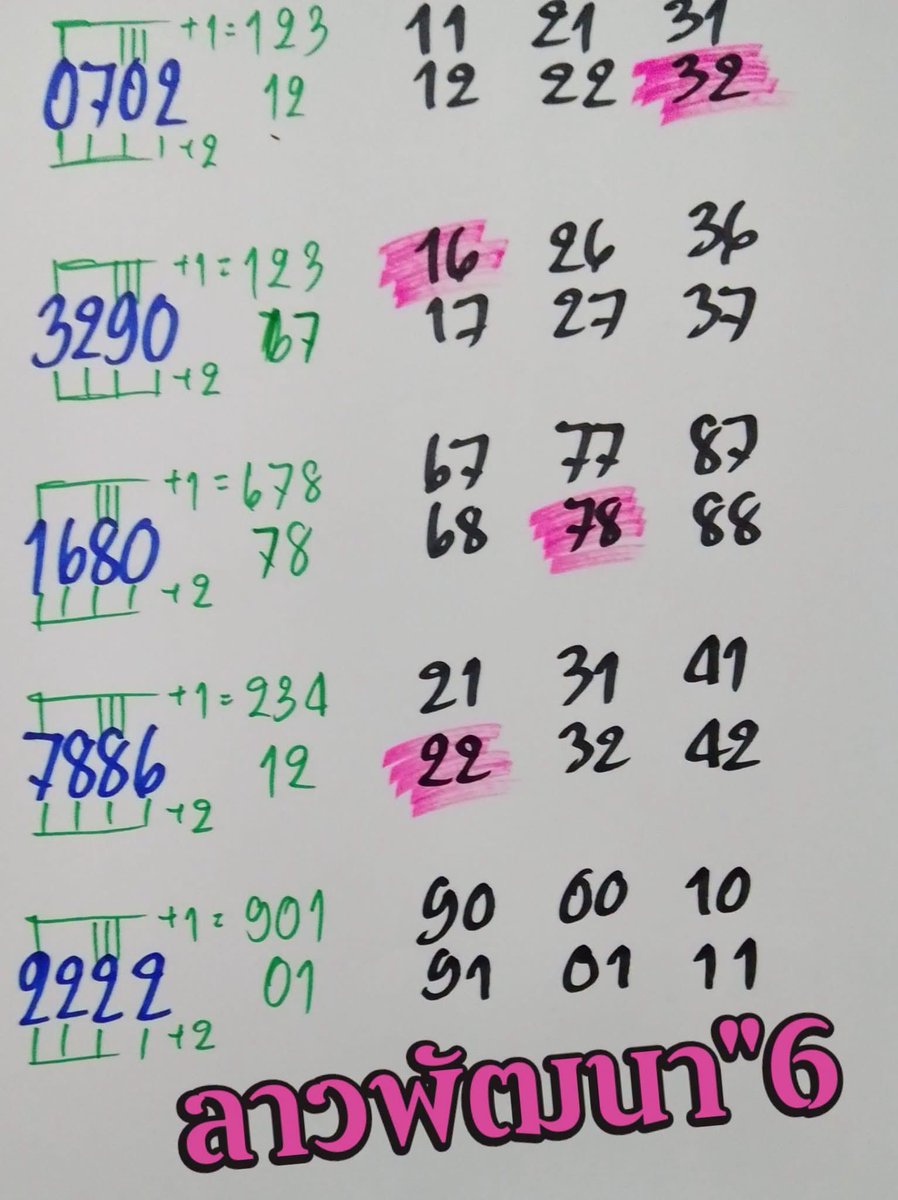 +1=123 11 21 31
0702 12 12 22 32
+2
+1=123 16 26 36
3290 67 17 27 37
+2
+1=678 67 77 87
1680 78 68 78 88
+2
+1=234 21 31 41
7886 12 22 32 42
+2
+1=901 90 00 10
2222 01 91 01 11
+2
ลาวพัฒนา"6